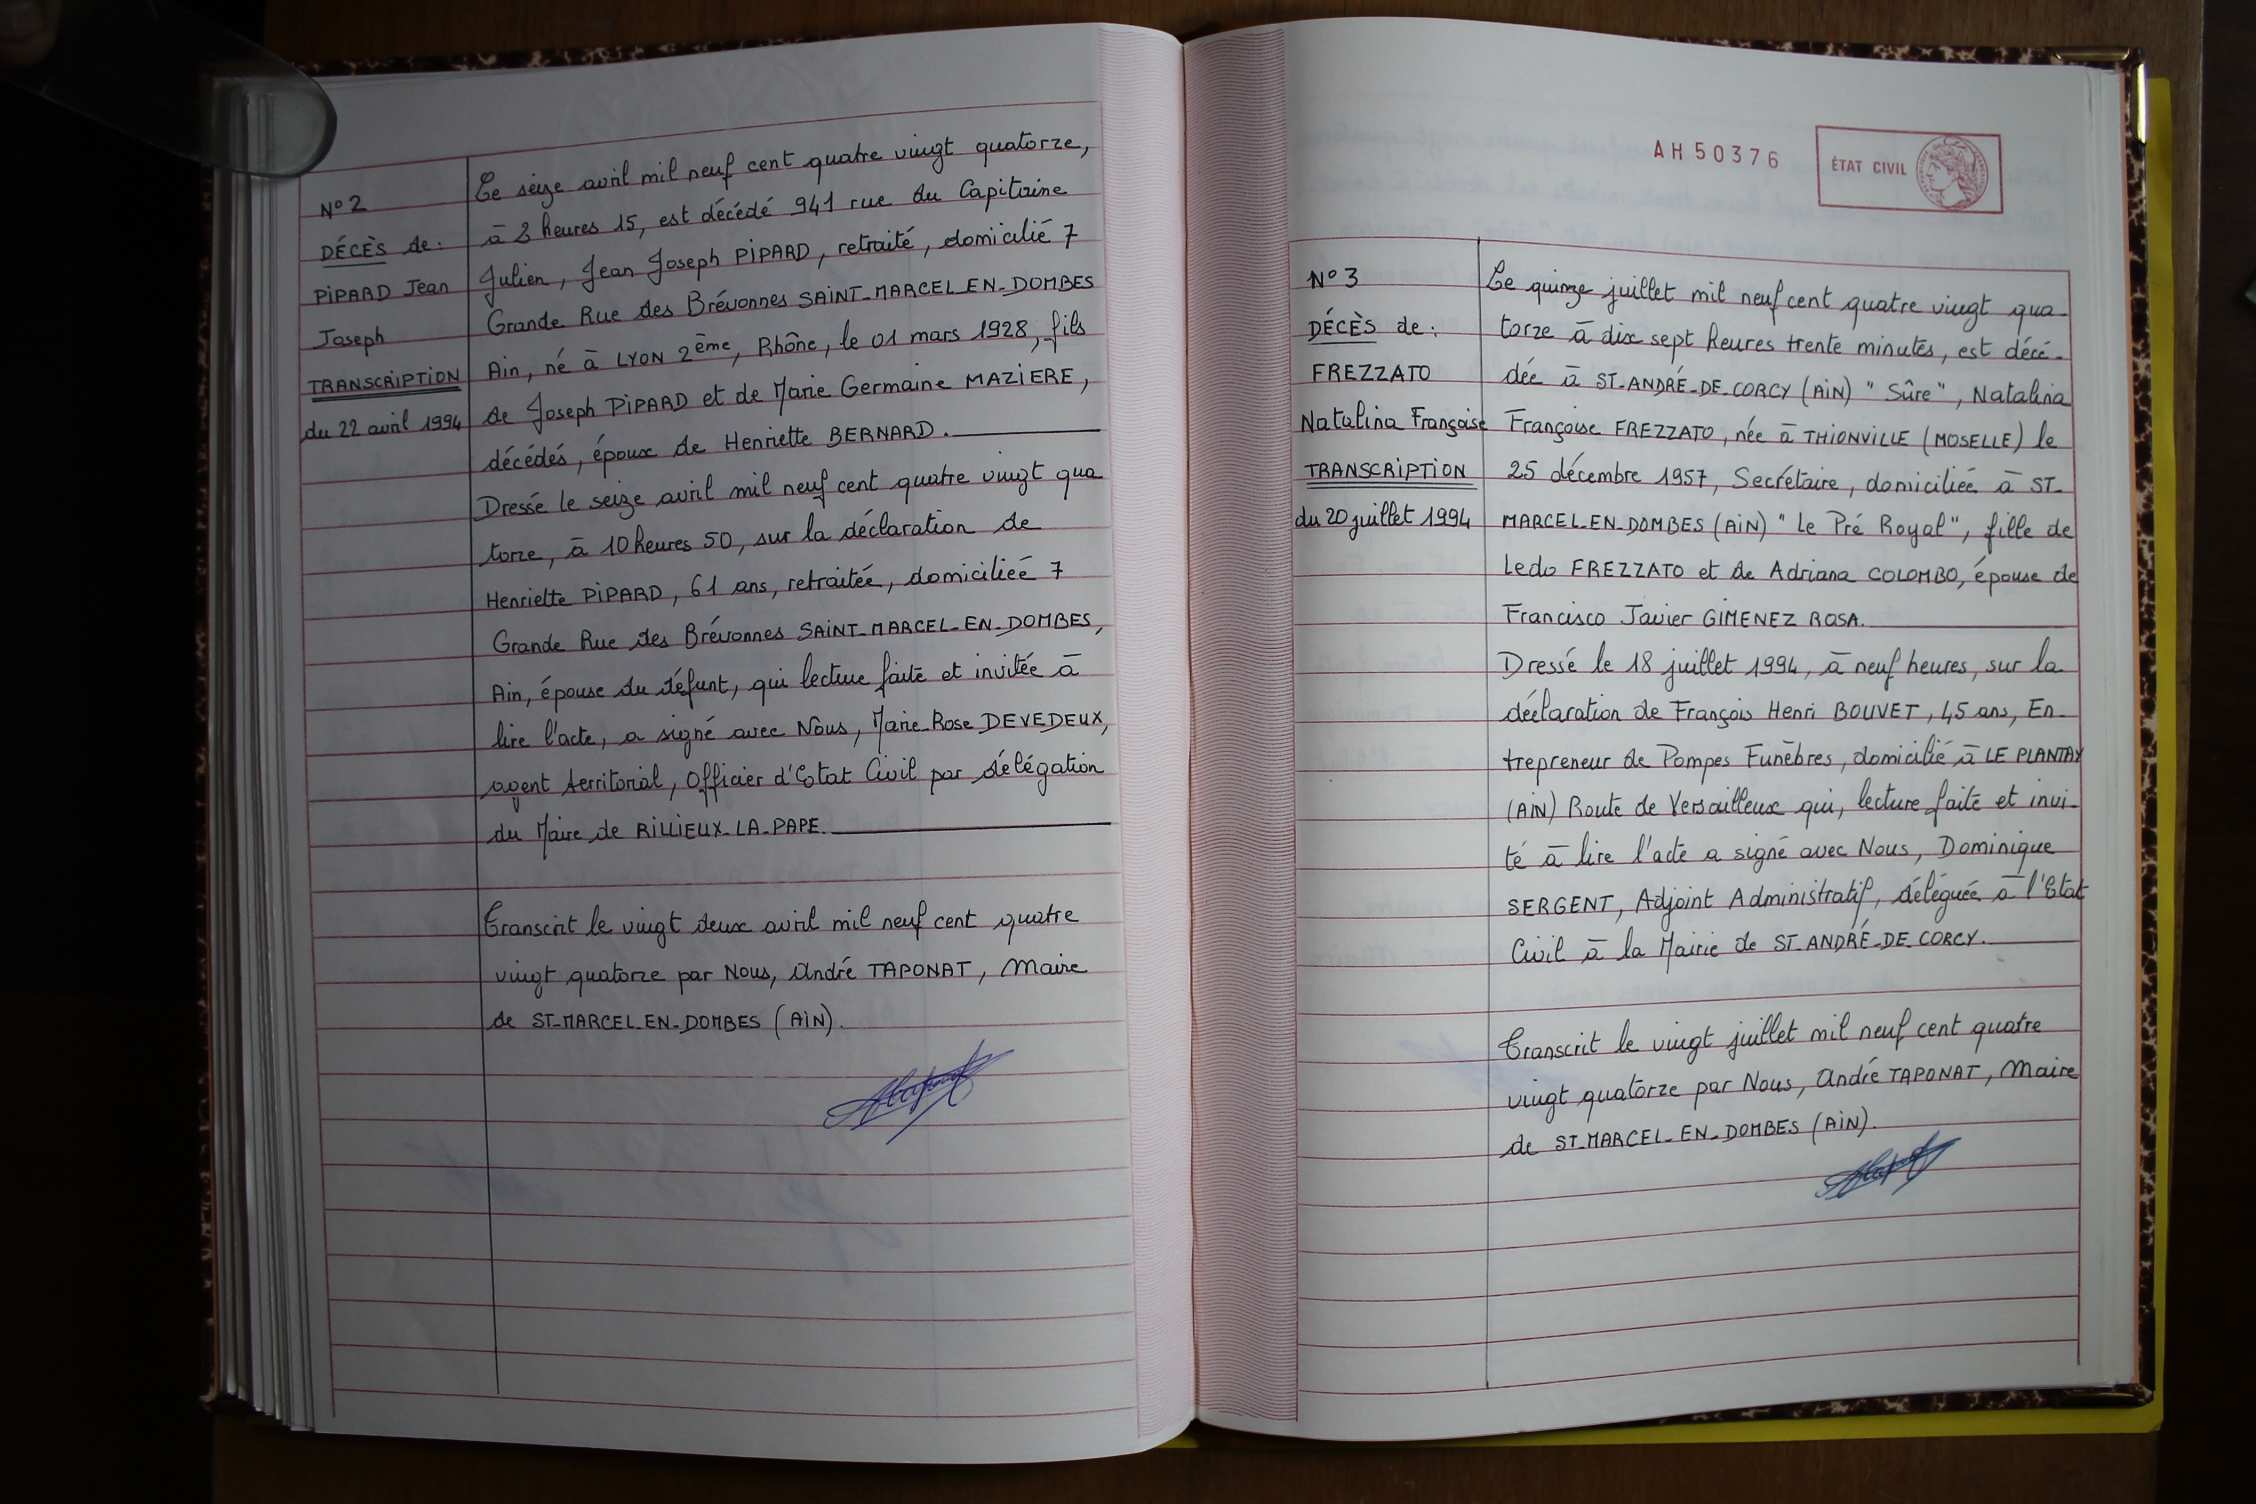 N° 2
DÉCÈS de :
PIPARD Jean
Joseph
TRANSCRIPTION
du 22 avril 1994
Le seize avril mil neuf cent quatre vingt quatorze,
à 8 heures 15, est décédé 941 rue du Capitaine
Julien, Jean Joseph PIPARD, retraité, domicilié 7
Grande Rue des Brévonnes SAINT-MARCEL-EN-DOMBES
Ain, né à LYON 2ème, Rhône, le 01 mars 1928, fils
de Joseph PIPARD et de Marie Germaine MAZIERE,
décédés, époux de Henriette BERNARD.
Dressé le seize avril mil neuf cent quatre vingt qua
torze, à 10 heures 50, sur la déclaration de
Henriette PIPARD, 61 ans, retraitée, domiciliée 7
Grande Rue des Brévonnes SAINT-MARCEL-EN-DOMBES,
Ain, épouse du défunt, qui lecture faite et invitée à
lire l'acte, a signé avec Nous, Marie-Rose DEVEDEUX,
agent territorial, Officier d'Etat Civil par délégation
du Maire de RILLIEUX-LA-PAPE.
Transcrit le vingt deux avril mil neuf cent quatre
vingt quatorze par Nous, André TAPONAT, Maire
de ST-MARCEL-EN-DOMBES (AIN).
AH50376
ÉTAT CIVIL
N° 3
DÉCÈS de :
FREZZATO
Natalina Françoise
TRANSCRIPTION
du 20 juillet 1994
Le quinze juillet mil neuf cent quatre vingt qua-
torze à dix sept heures trente minutes, est décé-
dée à ST-ANDRÉ-DE-CORCY (AIN) "Sûre", Natalina
Françoise FREZZATO, née à THIONVILLE (MOSELLE) le
25 décembre 1957, Secrétaire, domiciliée à ST-
MARCEL-EN-DOMBES (AIN) "Le Pré Royal", fille de
Ledo FREZZATO et de Adriana COLOMBO, épouse de
Francisco Javier GIMENEZ ROSA.
Dressé le 18 juillet 1994, à neuf heures, sur la
déclaration de François Henri BOUVET, 45 ans, En-
trepreneur de Pompes Funèbres, domicilié à LE PLANTAY
(AIN) Route de Versailleux qui, lecture faite et invi-
té à lire l'acte a signé avec Nous, Dominique
SERGENT, Adjoint Administratif, déléguée à l'Etat
Civil à la Mairie de ST-ANDRÉ-DE-CORCY.
Transcrit le vingt juillet mil neuf cent quatre
vingt quatorze par Nous, André TAPONAT, Maire
de ST-MARCEL-EN-DOMBES (AIN).